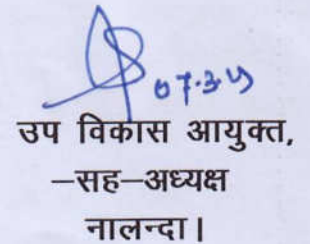 उप विकास आयुक्त,
–सह–अध्यक्ष
नालन्दा।